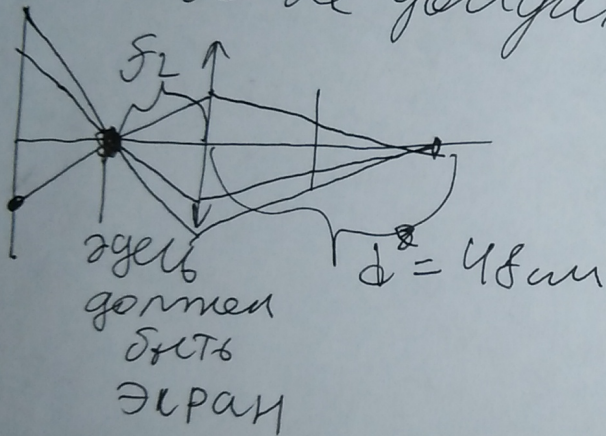 не
f₂
здесь
должен
быть
экран
d = 48 см